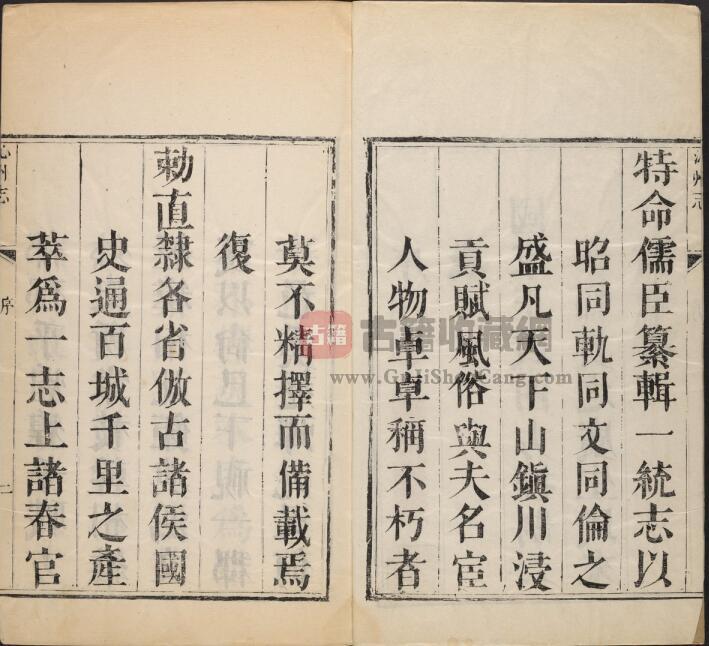 特命儒臣纂輯一統志以
昭同軌同文同倫之
盛凡天下山鎮川浸
貢賦風俗與夫名宦
人物卓卓稱不朽者
莫不精擇而備載焉
復
勅直隸各省倣古諸侯國
史通百城千里之產
萃爲一志上諸春官
州志
序
二
古籍
古籍收藏網
www.GuJiShouCang.com